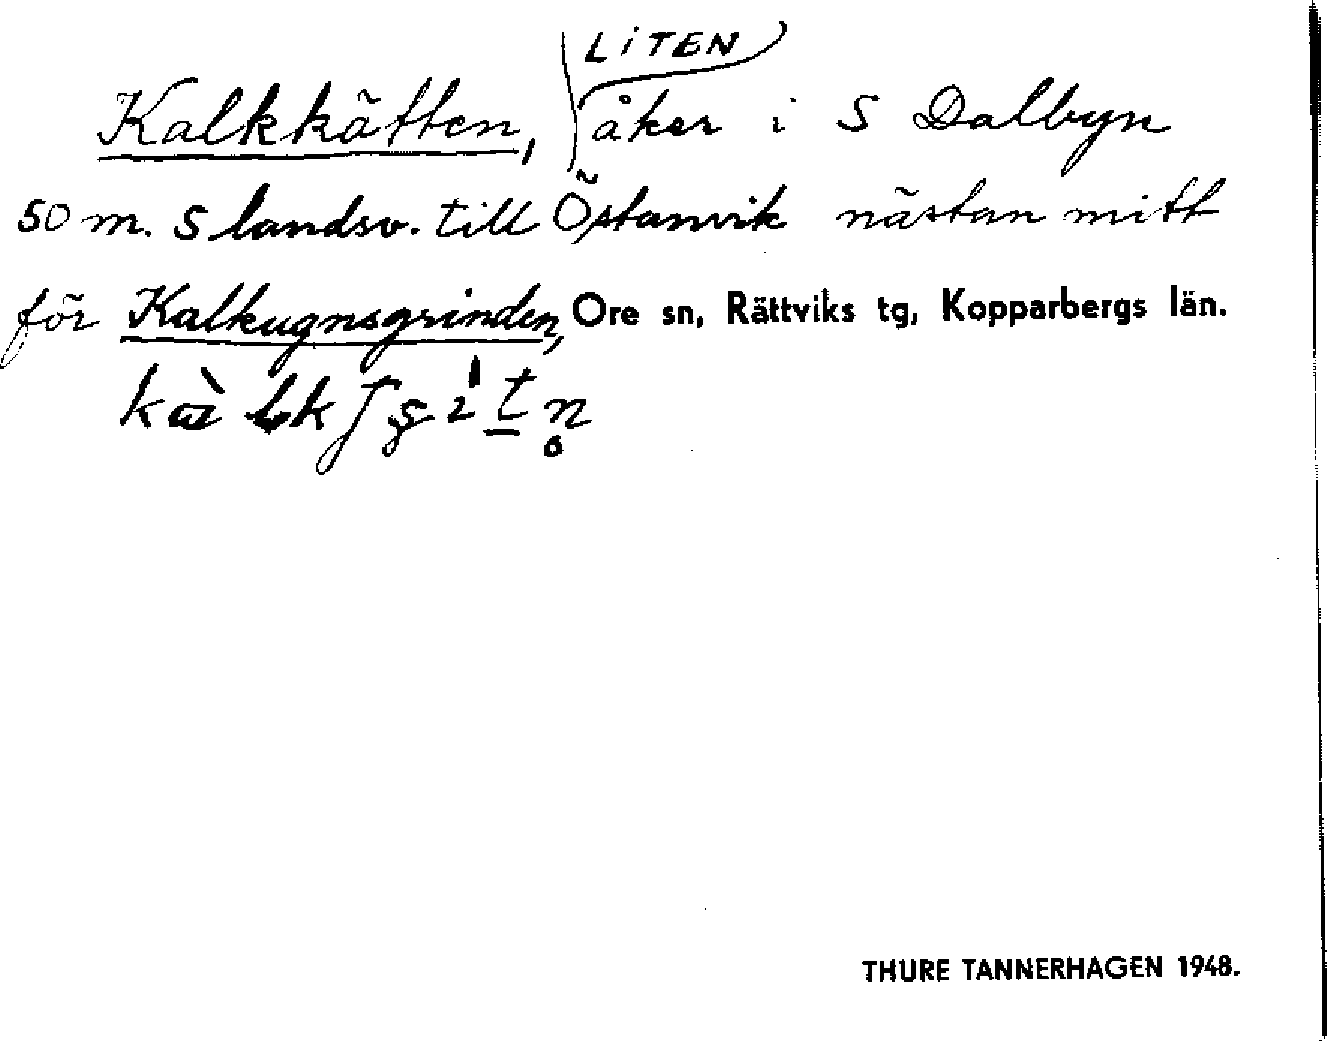 LITEN
Kalkkätten, åker i S Dalbyn
50 m. S landsv. till Östanvik nästan mitt
för Kalkugnsgrinden, Ore sn, Rättviks tg, Kopparbergs län.
THURE TANNERHAGEN 1948.